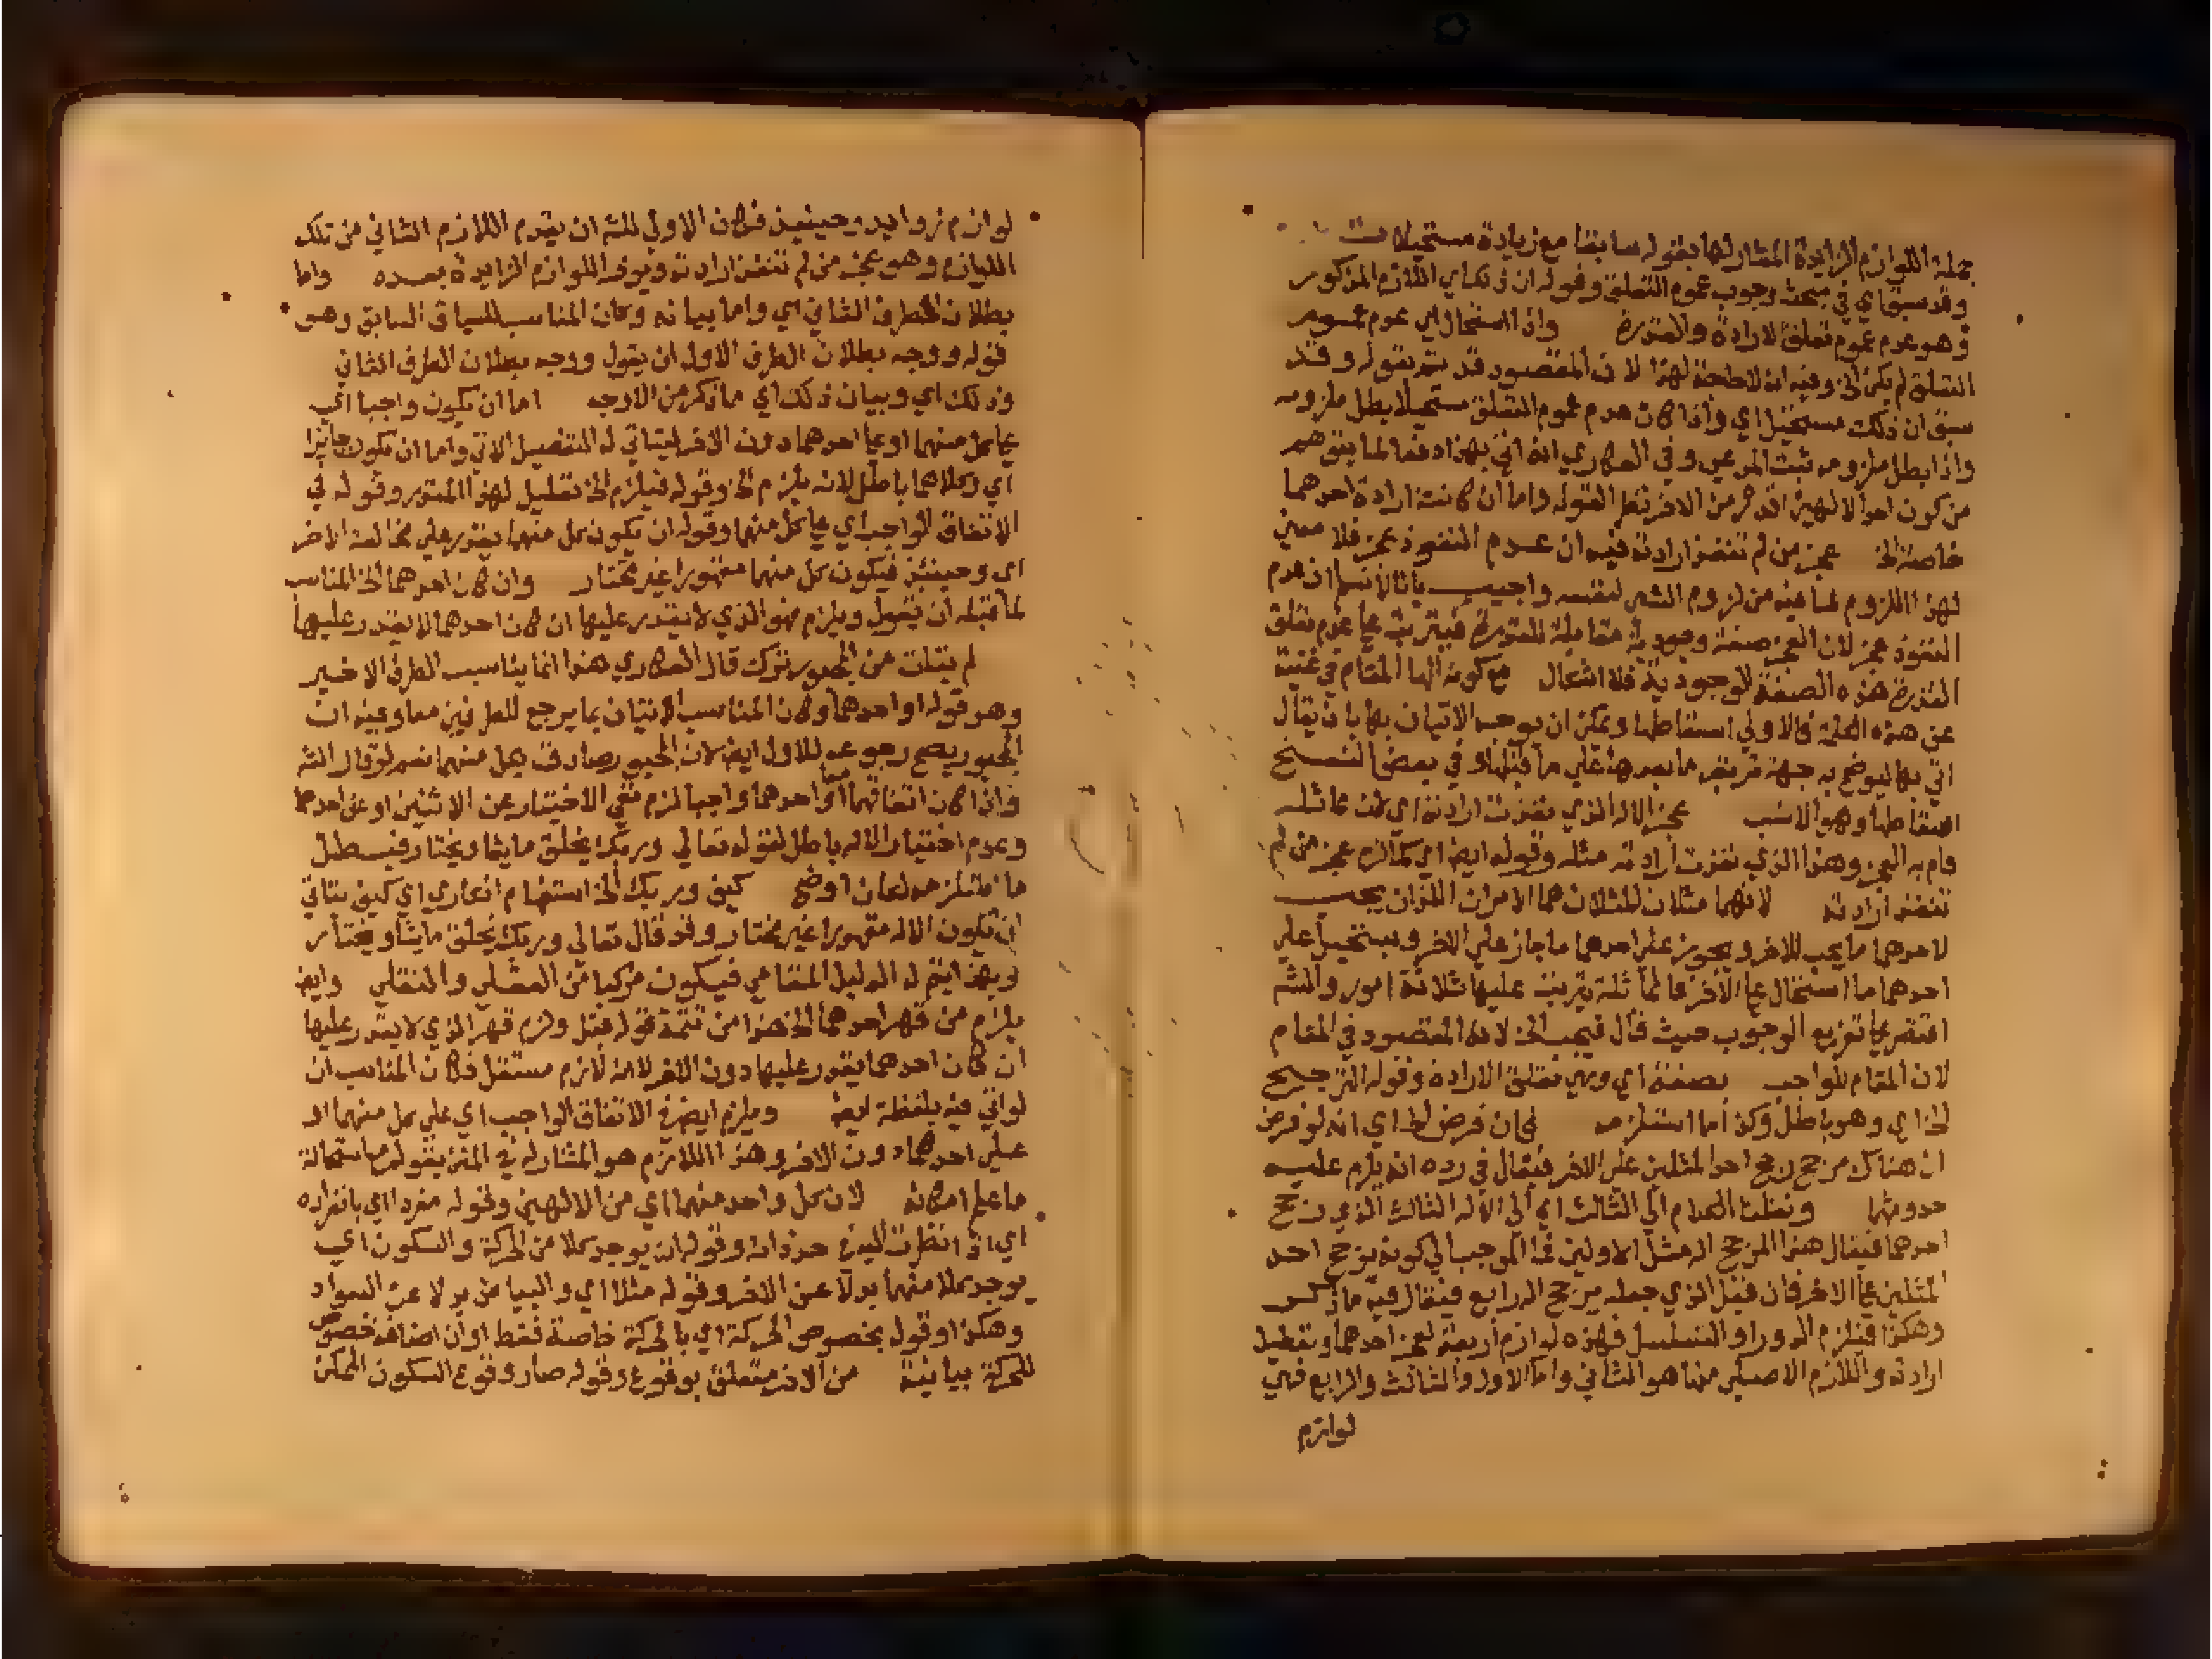 جملة اللوازم الزايدة المشار لها بقوله سابقا مع زيادة مستحيلات
وقد سبق اي في مبحث وجوب عموم التعلق وقوله ان ذلك اي اللازم المذكور
وهو عدم عموم تعلق الارادة والقدرة واذا استحال اي عدم عموم
التعلق لم يكن الخ وفيه انه لا حاجة لهذا لان المقصود قد تم بقوله وقد
سبق ان ذلك مستحيل اي واذا كان عدم عموم التعلق مستحيلا بطل ملزومه
واذا بطل ملزومه ثبت المدعي وفي العكاري انه اتي بهذا دفعا لما يتوهم
من كون احد الالهين اقدر من الاخر نظرا لقوله واما ان كانت ارادة احدهما
خاصة الخ عجز من لم تنفذ ارادته فيه ان عدم النفوذ عجز فلا معني
لهذا اللزوم لما فيه من لزوم الشي لنفسه واجيب بانا لا نسلم ان عدم
النفوذ عجز لان العجز صفة وجودية مقابلة للقدرة فيترتب علي عدم تعلق
القدرة هذه الصفة الوجودية فلا اشكال مع كونه الها المقام في غنية
عن هذه العلة فالاولي اسقاطها ويمكن ان يوجه الاتيان بها بان يقال
اتي بها ليوضح به جهة تفريع ما بعدها علي ما قبلها وفي بعض النسخ
اسقاطها وهو الانسب عجز الاله الذي نفذت ارادته اي لان مماثله
قام به العجز وهذا الذي نفذت ارادته مثله وقوله ايضا اي كما لزم عجز من لم
تنفذ ارادته لانهما مثلان المثلان هما الامران اللذان يجب
لاحدهما ما يجب للاخر ويجوز علي احدهما ما جاز علي الاخر ويستحيل علي
احدهما ما استحال علي الاخر فالمماثلة يترتب عليها ثلاثة امور والشم
اقتصر علي تفريع الوجوب حيث قال فيجب الخ لانه المقصود في المقام
لان المقام للواجب بصفة اي وهي تعلق الارادة وقوله الترجيح
الخ اي وهو باطل وكذا ما استلزمه فان فرض الخ اي انه لو فرض
ان هناك مرجح رجح احد المثلين علي الاخر فيقال في رده انه يلزم عليه
حدوثهما ونقلنا الكلام الي الثالث اي الي الاله الثالث الذي رجح
احدهما فيقال هذا المرجح اله مثل الاولين فما الموجب الي كونه يرجح احد
المثلين علي الاخر فان قيل الذي جعله يرجح اله رابع فيقال فيه ما ذكر
وهكذا فيلزم الدور او التسلسل فهذه لوازم اربعة لعجز احدهما وتعطيل
ارادته واللازم الاصلي منها هو الثاني واما الاول والثالث والرابع فهي
لوازم
لوازم زوايد وحينيذ فكان الاولي للشم ان يقدم اللازم الثاني من تلك
اللوازم وهو عجز من لم تنفذ ارادته ويوخر اللوازم الزايدة بعده واما
بطلان الطرف الثاني اي واما بيانه وكان المناسب للسياق السابق وهو
قوله ووجه بطلان الطرف الاول ان يقول ووجه بطلان الطرف الثاني
وذلك اي وبيان ذلك اي ما ذكر من الاوجه اما ان يكون واجبا اي
علي كل منهما او علي احدهما دون الاخر ليتاتي له التفصيل الاتي واما ان يكون جائزا
اي وكلاهما باطل لانه يلزم الخ وقوله فيلزم الخ تعليل لهذا المقدر وقوله في
الاتفاق الواجب اي علي كل منهما وقوله ان يكون كل منهما يقدر علي مخالفة الاخر
اي وحينئذ فيكون كل منهما مقهورا غير مختار وان كان احدهما الخ المناسب
لما قبله ان يقول ويلزم قهر الذي لا يقدر عليها ان كان احدهما لا يقدر عليها
لم يتات من المجبور ترك قال العكاري هذا انما يناسب الطرف الاخير
وهو قوله او احدهما وكان المناسب الاتيان بما يرجع للطرفين معا وفيه ان
المجبور يصح رجوعه للاول ايضا لان المجبور صادق بكل منهما نعم لو قال الشم
واذا كان اتفاقهما او احدهما واجبا لزم نفي الاختيار عن الاثنين او عن احدهما
وعدم اختيار الاله باطل لقوله تعالي وربك يخلق ما يشا ويختار فبطل
ما استلزمه لكان اوضح كيف وربك الخ استفهام انكاري اي كيف يتاتي
ان يكون الاله مقهورا غير مختار وقد قال تعالي وربك يخلق ما يشا ويختار
وبهذا يتم له الدليل المقامي فيكون مركبا من العقلي والنقلي وايضا
يلزم من قهر احدهما الخ هذا من تتمة قوله قبل ولزم قهر الذي لا يقدر عليها
ان كان احدهما يقدر عليها دون الاخر لانه لازم مستقل فكان المناسب ان
لو اتي فيه بلفظة ايضا ويلزم ايضا في الاتفاق الواجب اي علي كل منهما او
علي احدهما دون الاخر وهذا اللازم هو المشار له في المتن بقوله مع استحالة
ما علم امكانه لان كل واحد منهما اي من الالهين وقوله مفردا اي بانفراده
اي اذا نظرت اليه في حد ذاته وقوله ان يوجد كلا من الحركة والسكون اي
يوجد كلا منهما بدلا عن الاخر وقوله مثلا اي والبياض بدلا عن السواد
وهكذا وقوله بخصوص الحركة اي بالحركة خاصة فقط او ان اضافة خصوص
للحركة بيانية من الاخر متعلق بوقوع وقوله صار وقوع السكون الممكن